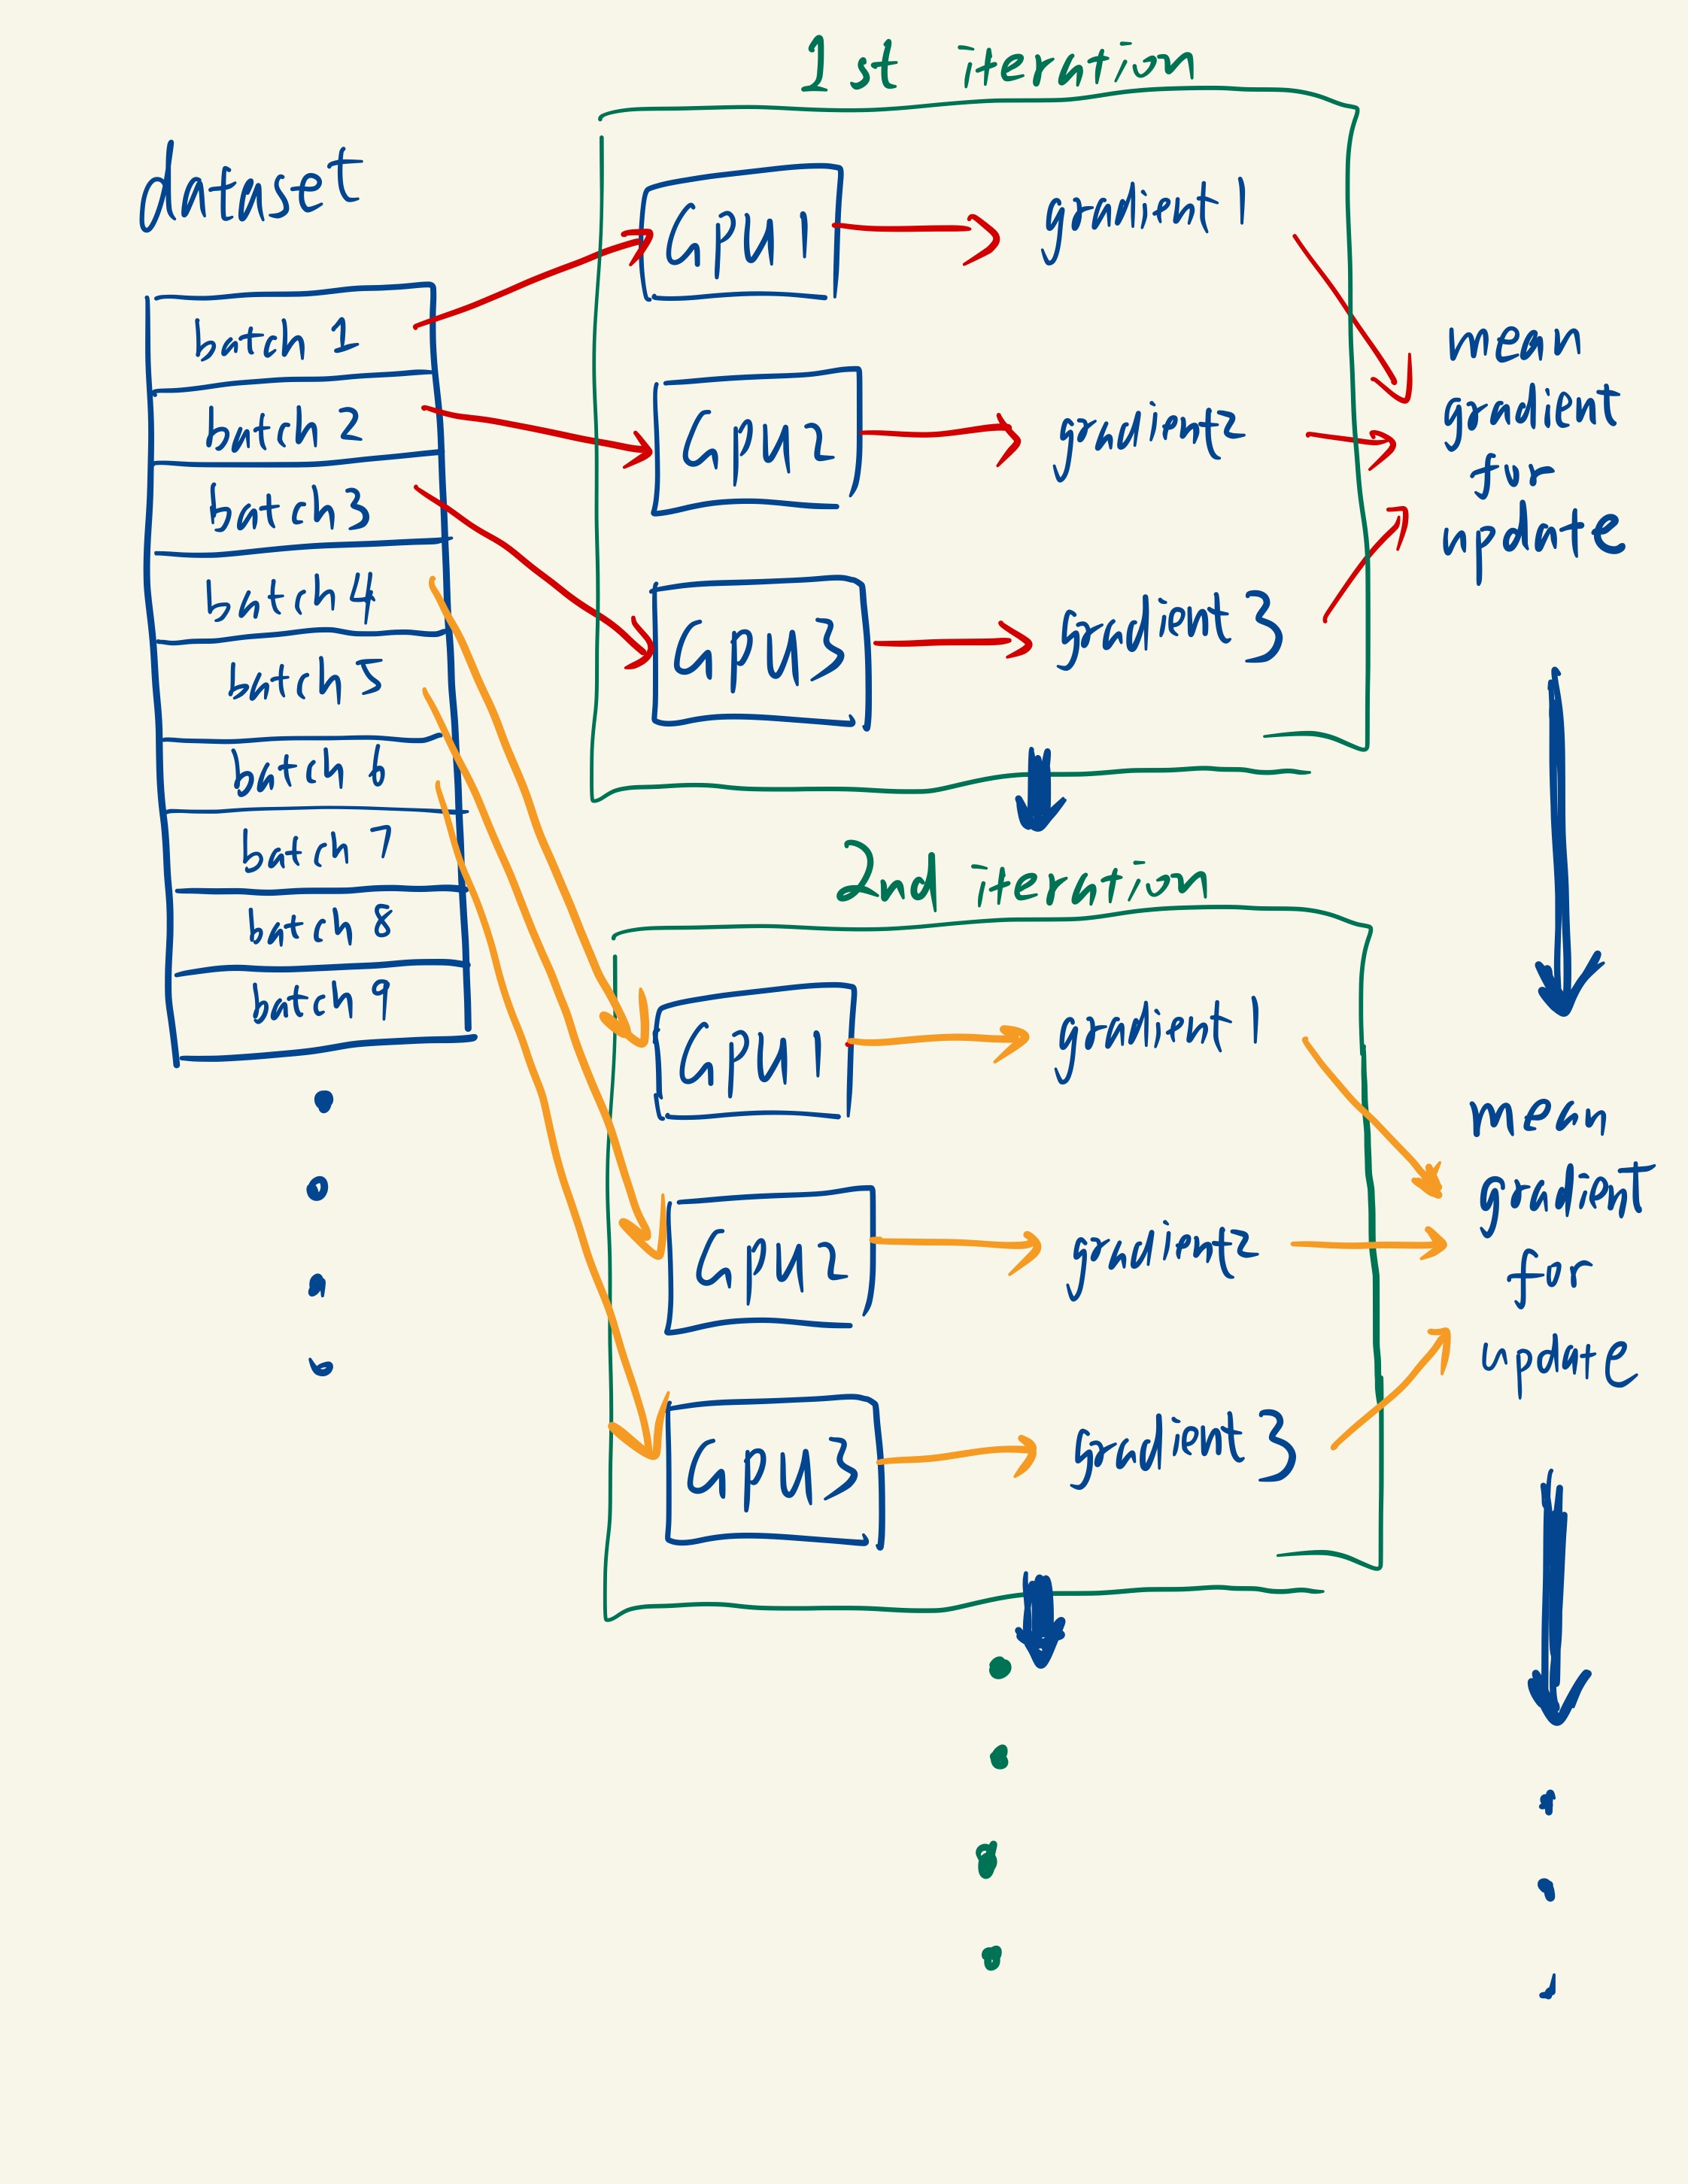 dataset
batch 1
batch 2
batch 3
batch 4
batch 5
batch 6
batch 7
batch 8
batch 9
1st iteration
GPU1
gradient 1
GPU2
gradient2
GPU3
gradient 3
mean
gradient
for
update
2nd iteration
GPU1
gradient 1
GPU2
gradient2
GPU3
gradient 3
mean
gradient
for
update